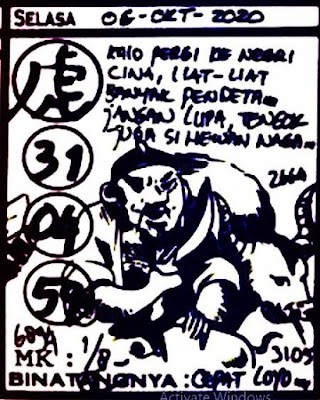 SELASA 06-OKT-2020
虎
KHIO PERGI KE NEGRI
CINA, LIAT-LIAT
BANYAK PENDETA...
JANGAN LUPA, TENGOK
JUGA SI HEWAN NAGA...
31
04
MR : 1/8-
3105
BINATANGNYA : CEPAT LOYO...
Activate Windows